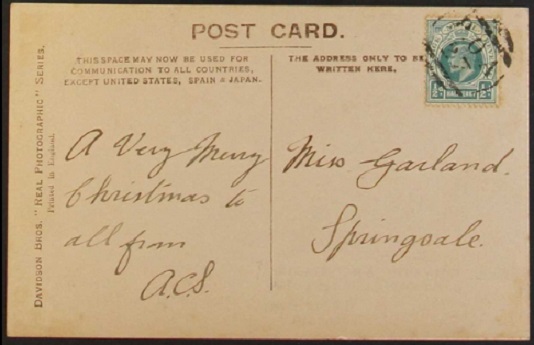 POST CARD.
THIS SPACE MAY NOW BE USED FOR
COMMUNICATION TO ALL COUNTRIES,
EXCEPT UNITED STATES, SPAIN & JAPAN.
THE ADDRESS ONLY TO BE
WRITTEN HERE.
DAVIDSON BROS. "REAL PHOTOGRAPHIC" SERIES.
Printed in England.
A Very Merry
Christmas to
all from
A.C.S.
Miss Garland.
Springvale.